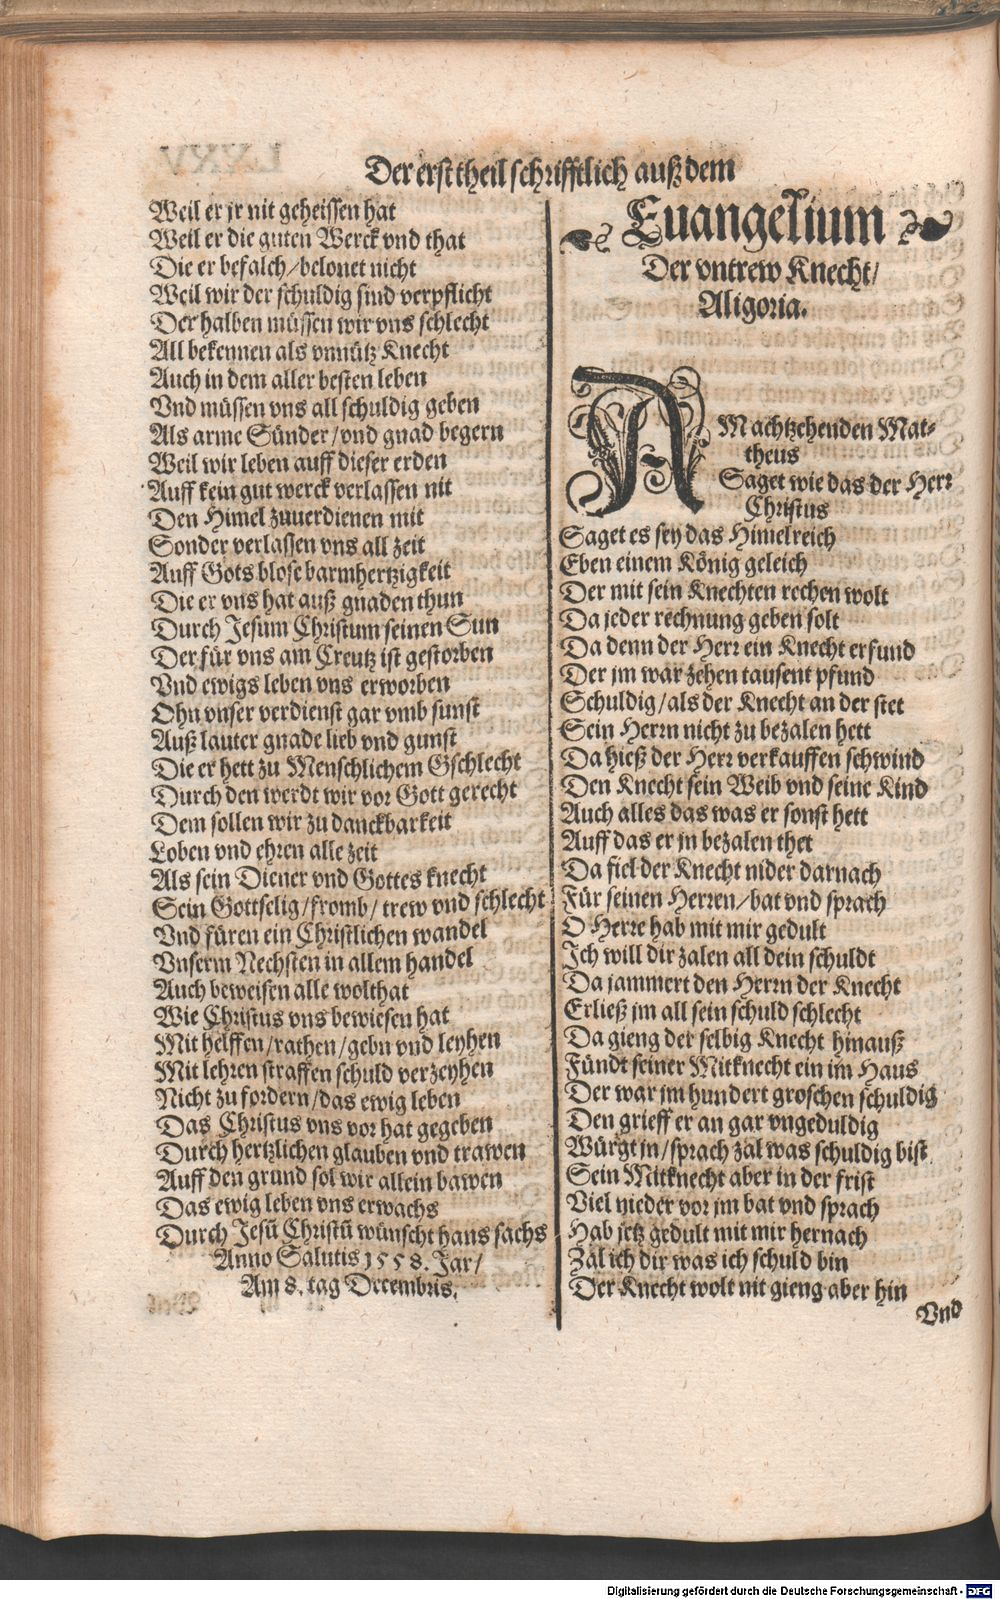 Der erst theil schrifftlich auß dem
Weil er jr nit geheissen hat
Weil er die guten Werck vnd that
Die er befalch/belonet nicht
Weil wir der schuldig sind verpflicht
Der halben müssen wir vns schlecht
All bekennen als vnnütz Knecht
Auch in dem aller besten leben
Vnd müssen vns all schuldig geben
Als arme Sünder/vnd gnad begern
Weil wir leben auff dieser erden
Auff kein gut werck verlassen nit
Den Himel zuuerdienen mit
Sonder verlassen vns all zeit
Auff Gots blose barmhertzigkeit
Die er vns hat auß gnaden thun
Durch Jesum Christum seinen Sun
Der für vns am Creutz ist gestorben
Vnd ewigs leben vns erworben
Ohn vnser verdienst gar vmb sunst
Auß lauter gnade lieb vnd gunst
Die er hett zu Menschlichem Gschlecht
Durch den werdt wir vor Gott gerecht
Dem sollen wir zu danckbarkeit
Loben vnd ehren alle zeit
Als sein Diener vnd Gottes knecht
Sein Gottselig/fromb/trew vnd schlecht
Vnd füren ein Christlichen wandel
Vnserm Nechsten in allem handel
Auch beweisen alle wolthat
Wie Christus vns bewiesen hat
Mit helffen/rathen/gebn vnd leyhen
Mit lehren straffen schuld verzeyhen
Nicht zu fordern/das ewig leben
Das Christus vns vor hat gegeben
Durch hertzlichen glauben vnd trawen
Auff den grund sol wir allein bawen
Das ewig leben vns erwachs
Durch Jesū Christū wünscht hans sachs
Anno Salutis 1558. Jar/
Am 8. tag Decembris.
Euangelium
Der vntrew Knecht/
Aligoria.
AM achtzehenden Mat-
theus
Saget wie das der Herr
Christus
Saget es sey das Himelreich
Eben einem König geleich
Der mit sein Knechten rechen wolt
Da jeder rechnung geben solt
Da denn der Herr ein Knecht erfund
Der jm war zehen tausent pfund
Schuldig/als der Knecht an der stet
Sein Herrn nicht zu bezalen hett
Da hieß der Herr verkauffen schwind
Den Knecht sein Weib vnd seine Kind
Auch alles das was er sonst hett
Auff das er jn bezalen thet
Da fiel der Knecht nider darnach
Für seinen Herren/bat vnd sprach
O Herre hab mit mir gedult
Ich will dir zalen all dein schuldt
Da jammert den Herrn der Knecht
Erließ jm all sein schuld schlecht
Da gieng der selbig Knecht hinauß
Fündt seiner Mitknecht ein im Haus
Der war jm hundert groschen schuldig
Den grieff er an gar vngeduldig
Würgt jn/sprach zal was schuldig bist
Sein Mitknecht aber in der frist
Viel nieder vor jm bat vnd sprach
Hab jetz gedult mit mir hernach
Zal ich dir was ich schuld bin
Der Knecht wolt nit gieng aber hin
Vnd
Digitalisierung gefördert durch die Deutsche Forschungsgemeinschaft - DFG